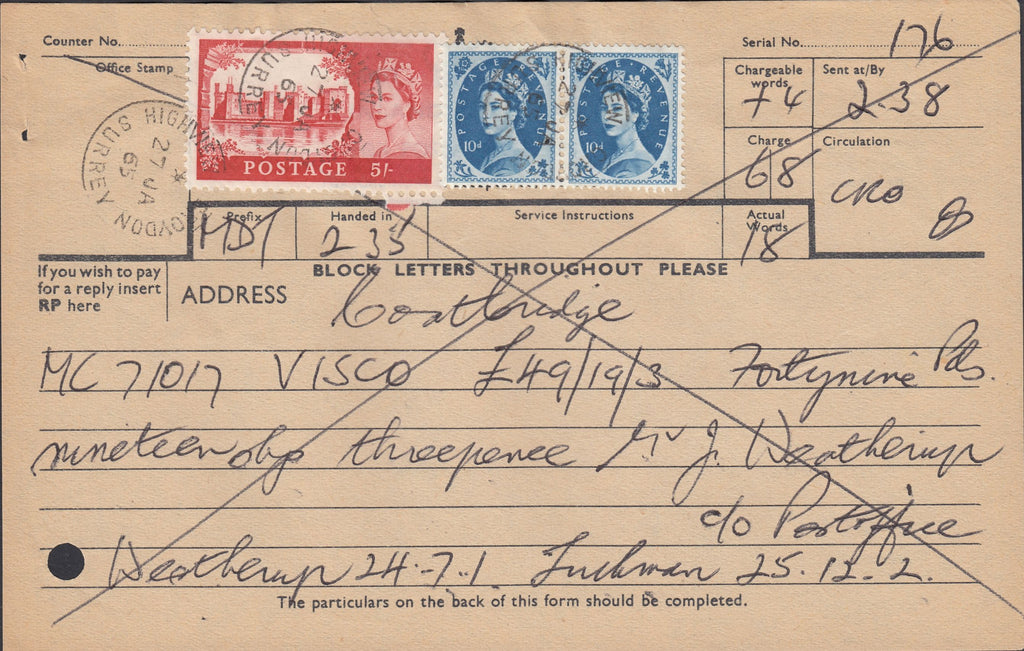 Counter No.
Serial No. 176
Office Stamp
Chargeable words
74
Sent at/By
2.38
HIGHWAY
CROYDON SURREY
27 JA
65
POSTAGE 5/-
POSTAGE REVENUE
10d
POSTAGE REVENUE
10d
Charge
6/8
Circulation
CRO
Prefix
MDT
Handed in
2 35
Service Instructions
Actual Words
18
If you wish to pay
for a reply insert
RP here
BLOCK LETTERS THROUGHOUT PLEASE
ADDRESS
Coatbridge
MC 71017 VISCO £49/19/3 Fortynine Pds.
nineteen shgs threepence Mr J. Weatherup
c/o Postoffice
Weatherup 24.7.1. Luckman 25.12.2.
The particulars on the back of this form should be completed.